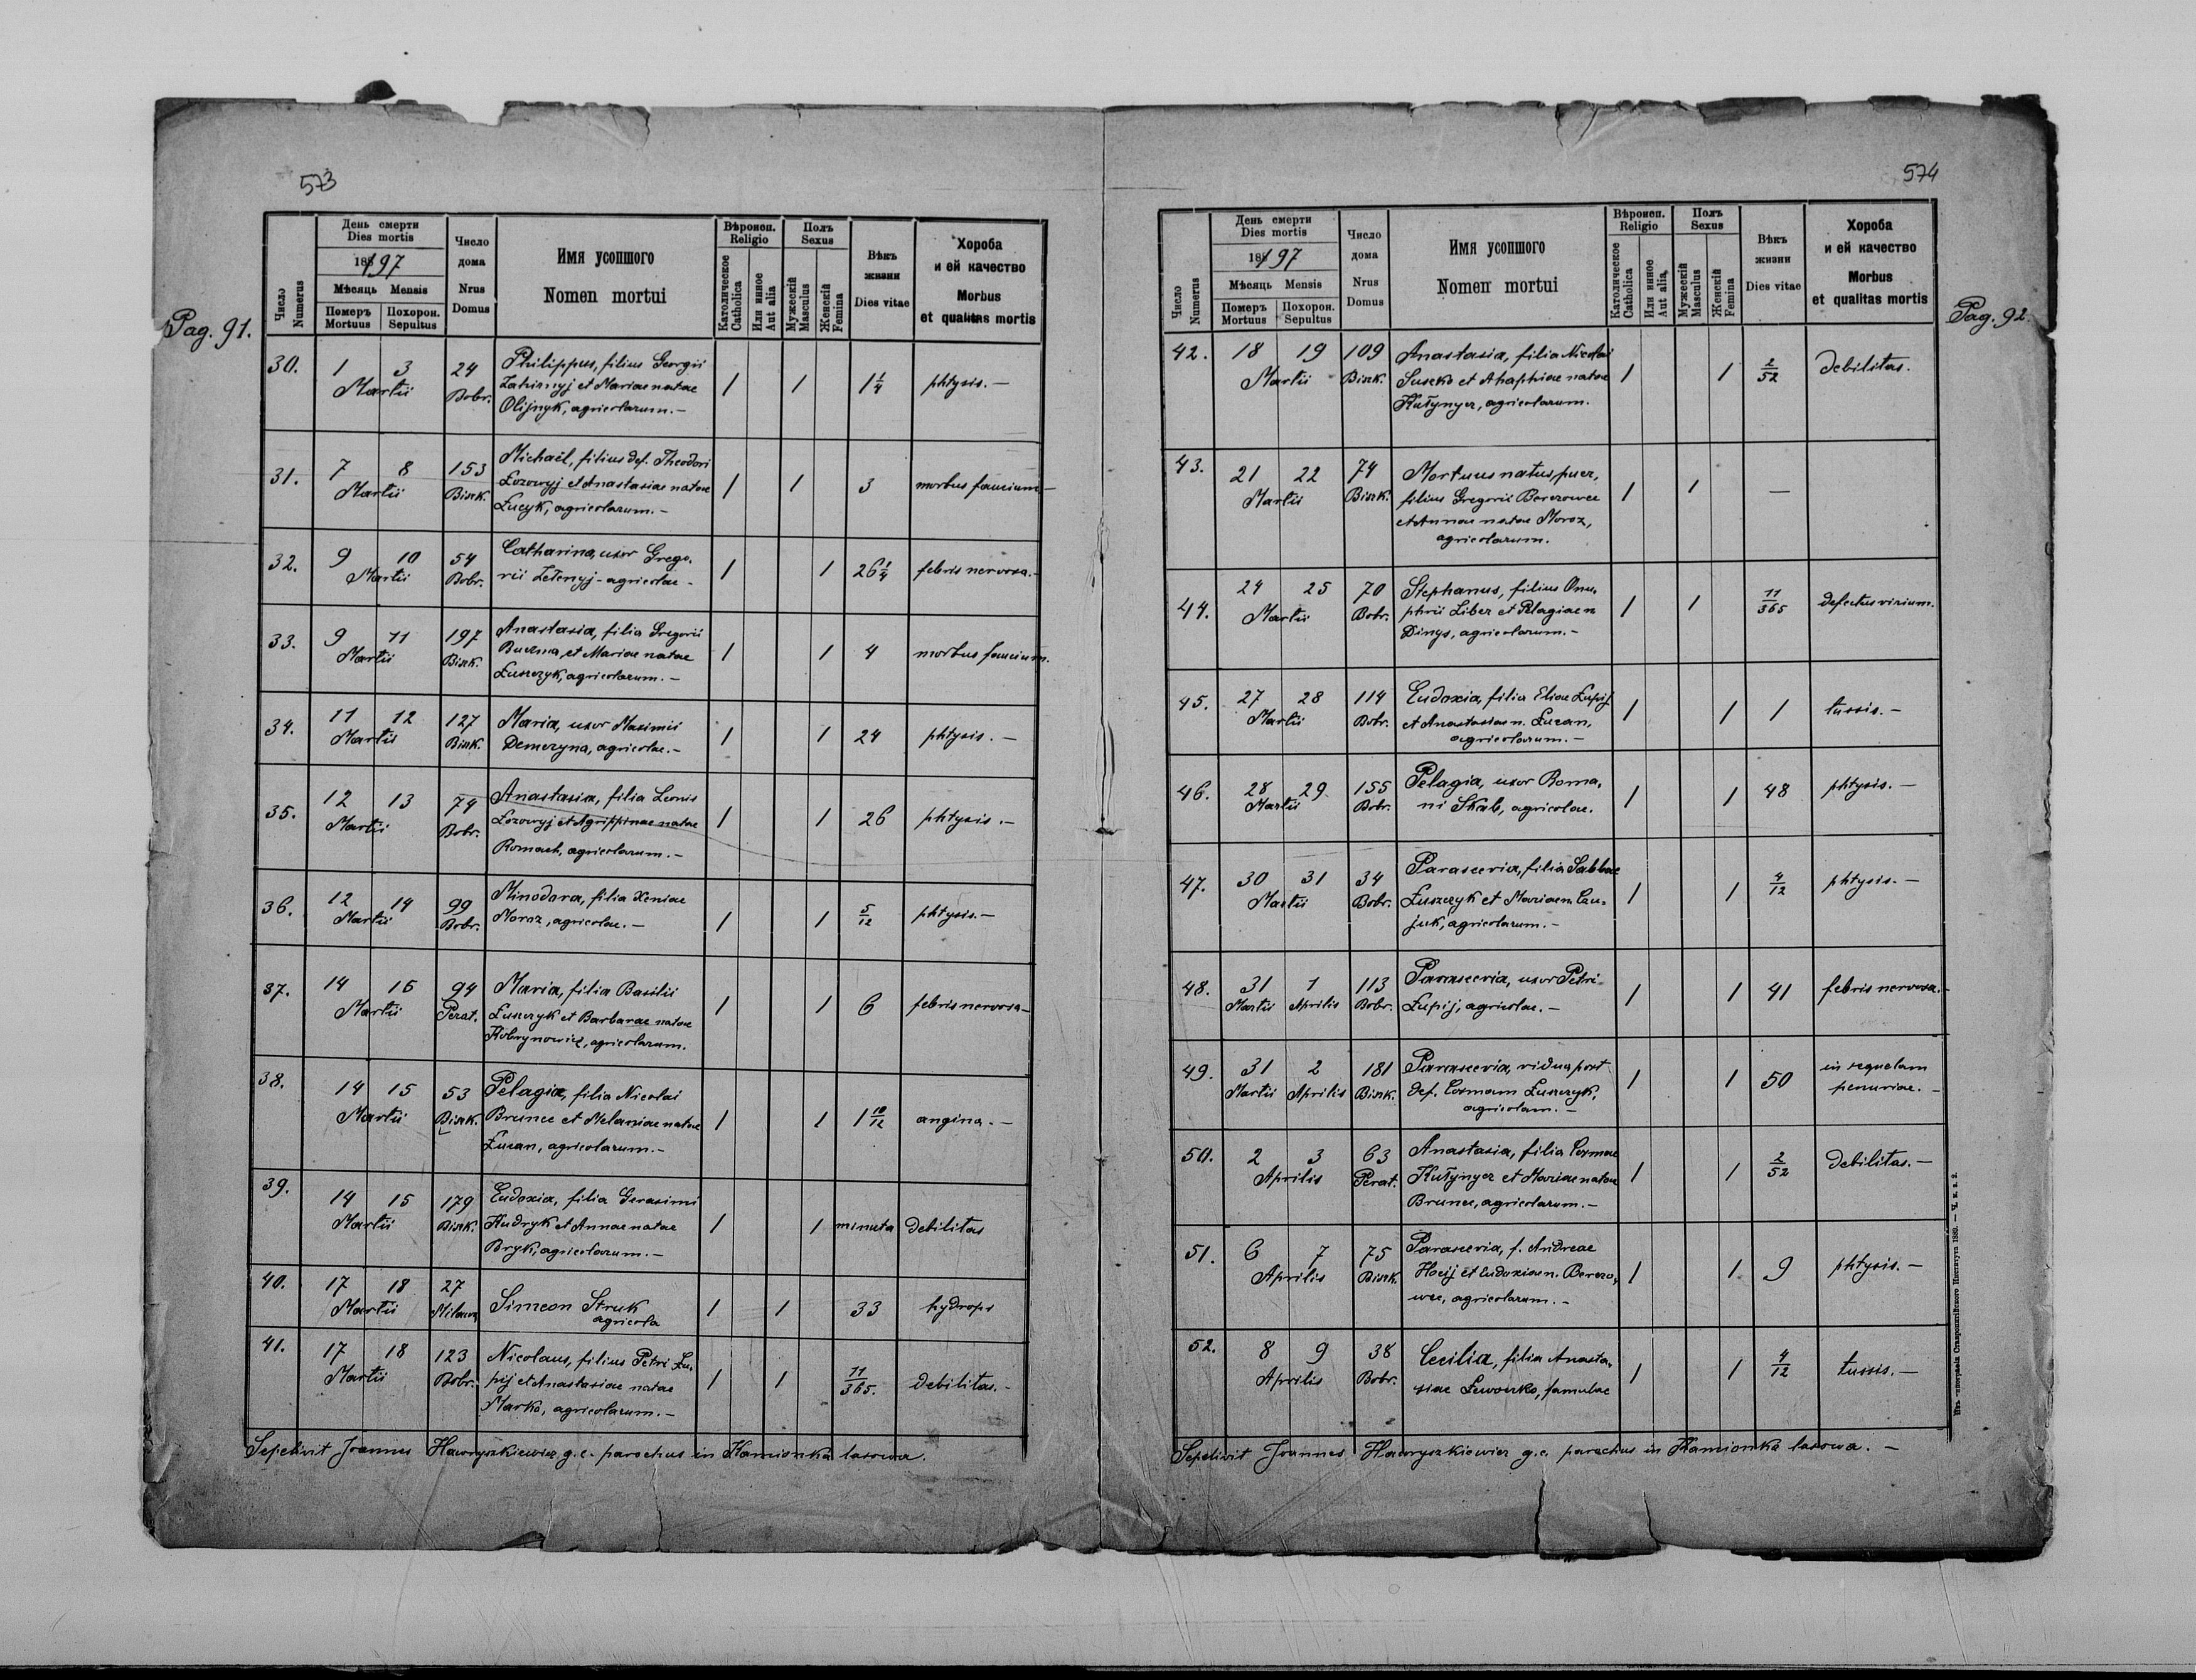 573
Pag. 91.
Число Numerus
День смерти
Dies mortis
1897
Мѣсяць Mensis
Померъ Mortuus
Похорон. Sepultus
Число дома
Nrus Domus
Имя усопшого
Nomen mortui
Вѣроисп.
Religio
Католическое Catholica
Или инное Aut alia
Полъ
Sexus
Мужескій Masculus
Женскій Femina
Вѣкъ жизни
Dies vitae
Хороба
и ей качество
Morbus
et qualitas mortis
30. 1 3 Martii 24 Bobr.
Philippus, filius Georgii
et Mariae natae
Olijnyk, agricolarum.—
1 1 1 1/4 phtysis.—
31. 7 8 Martii 153 Bisk.
Michaël, filius def. Theodori
Łozowyj et Anastasiae natae
Łucyk, agricolarum.—
1 1 3 morbus faucium—
32. 9 10 Martii 54 Bobr.
Catharina, uxor Grego-
rii Zełenyj - agricolae -
1 1 26 1/4 febris nervosa.—
33. 9 11 Martii 197 Bisk.
Anastasia, filia Gregorii
Buczma, et Mariae natae
Łuszczyk, agricolarum.—
1 1 4 morbus faucium.
34. 11 12 Martii 127 Bisk.
Maria, uxor Maximii
Demczyna, agricolae.—
1 1 24 phtysis.—
35. 12 13 Martii 74 Bobr.
Anastasia, filia Leonis
Łozowyj et Agrippinae natae
Romach, agricolarum.—
1 1 26 phtysis.—
36. 12 14 Martii 99 Bobr.
Minodora, filia Xeniae
Moroz, agricolae.—
1 1 5/12 phtysis.—
37. 14 16 Martii 94 Perat.
Maria, filia Basilii
Łuszczyk et Barbarae natae
Kobrynowicz, agricolarum.
1 1 6 febris nervosa—
38. 14 15 Martii 53 Bisk.
Pelagia, filia Nicolai
Brunec et Melaniae natae
Łucan, agricolarum.—
1 1 1 10/12 angina.—
39. 14 15 Martii 179 Bisk.
Eudoxia, filia Gerasimi
Kudryk et Annae natae
Bryk, agricolarum.—
1 1 minuta debilitas
40. 17 18 Martii 27
Simeon Struk
agricola
1 1 33 hydrops
41. 17 18 Martii 123 Bobr.
Nicolaus, filius Petri Łu-
pij et Anastasiae natae
Marko, agricolarum.—
1 1 11/365. debilitas.—
Sepelivit Joannes Hawryszkiewicz g.c. parochus in Kamionka lasowa.
574
Pag. 92.
Число Numerus
День смерти
Dies mortis
1897
Мѣсяць Mensis
Померъ Mortuus
Похорон. Sepultus
Число дома
Nrus Domus
Имя усопшого
Nomen mortui
Вѣроисп.
Religio
Католическое Catholica
Или инное Aut alia,
Полъ
Sexus
Мужескій Masculus
Женскій Femina
Вѣкъ жизни
Dies vitae
Хороба
и ей качество
Morbus
et qualitas mortis
42. 18 19 Martii 109 Bisk.
Anastasia, filia Nicolai
Suszko et Ahaphiae natae
Kułynycz, agricolarum.
1 1 2/52 debilitas.
43. 21 22 Martii 74 Bisk.
Mortuus natus puer,
filius Gregorii Berezowec
et Annae natae Moroz,
agricolarum.
1 1 —
44. 24 25 Martii 70 Bobr.
Stephanus, filius Onu-
phrii Liber et Pelagiae n.
Dinys, agricolarum.—
1 1 11/365 defectus virium.
45. 27 28 Martii 114 Bobr.
Eudoxia, filia Eliae Łupij
et Anastasiae n. Łucan,
agricolarum.—
1 1 1 tussis.—
46. 28 29 Martii 155 Bobr.
Pelagia, uxor Roma-
ni Skab, agricolae.
1 1 48 phtysis.—
47. 30 31 Martii 34 Bobr.
Parascevia, filia Sabbae
Łuszczyk et Mariae n. Cau-
juk, agricolarum.—
1 1 4/12 phtysis.—
48. 31 Martii 1 Aprilis 113 Bobr.
Parascevia, uxor Petri
Łupij, agricolae.—
1 1 41 febris nervosa.—
49. 31 Martii 2 Aprilis 181 Bisk.
Parascevia, vidua post
def. Cosmam Łuszczyk,
agricolam.—
1 1 50 in sequelam
penuriae.—
50. 2 3 Aprilis 63 Perat.
Anastasia, filia Cosmae
Kułynycz et Mariae natae
Brunec, agricolarum.—
1 1 2/52 debilitas.—
51. 6 7 Aprilis 75 Bisk.
Parascevia, f. Andreae
Hocij et Eudoxiae n. Berezo-
wec, agricolarum.—
1 1 9 phtysis.—
52. 8 9 Aprilis 38 Bobr.
Cecilia, filia Anasta-
siae Lewoczko, famulae
1 1 4/12 tussis.—
Sepelivit Joannes Hawryszkiewicz g.c. parochus in Kamionka lasowa.—
Изъ типографіи Ставропигійского Института 1880. — Ч. к. в. 2.